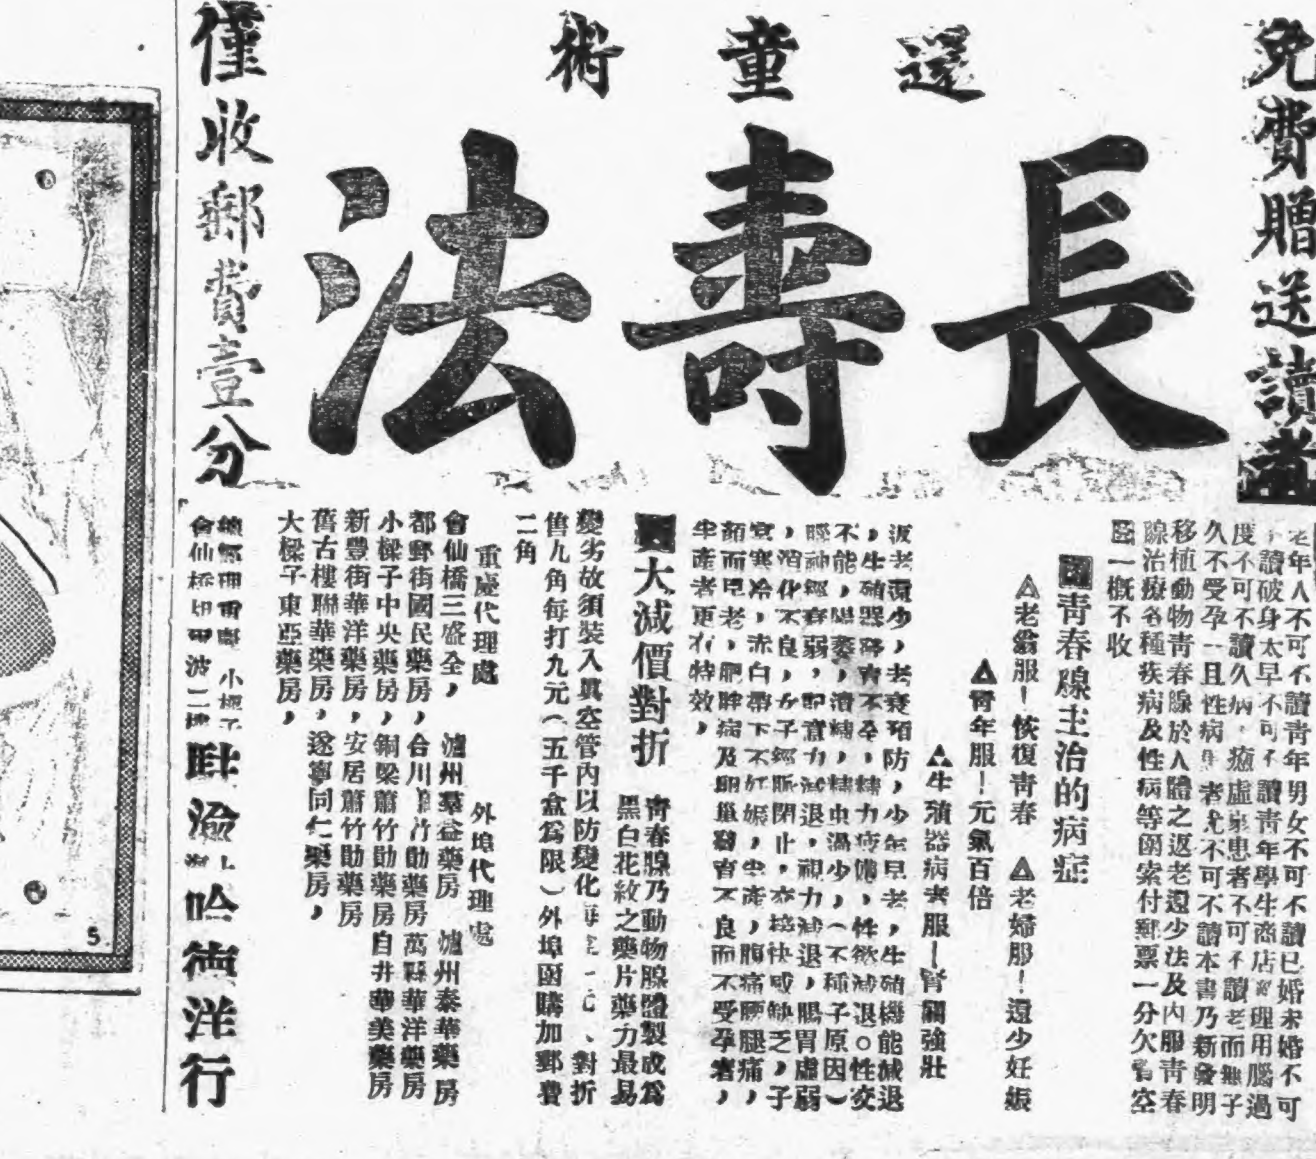 免費贈送讀者
還童術
長壽法
僅收郵費壹分
老年人不可不讀青年男女不可不讀已婚未婚不可
不讀破身太早不可不讀青年學生商店經理用腦過
度不可不讀久病癒虛患者不可不讀老而無子
久不受孕一且性病者尤不可不讀本書乃新發明
移植動物青春腺於人體之返老還少法及內服青春
腺治療各種疾病及性病等函索付郵票一分欠資空
函一概不收
青春腺主治的病症
▲老翁服！恢復青春 ▲老婦服！還少妊娠
▲青年服！元氣百倍
▲生殖器病者服！腎關強壯
返老還少，老衰預防，少年早老，生殖機能減退
，生殖器發育不全，精力疲憊，性慾減退。性交
不能，陽萎，遺精，精虫過少，（不種子原因）
腦神經衰弱，記憶力減退，視力減退，腸胃虛弱
，消化不良，女子經脈閉止，交接快感缺乏，子
宮寒冷，赤白帶下不妊娠，虫產，腹痛腰腿痛，
顏面早老，肥胖病及卵巢發育不良而不受孕者，
半產者更有特效，
大減價對折
青春腺乃動物腺體製成爲
黑白花紋之藥片藥力最易
變劣故須裝入眞空管內以防變化每 元、對折
售九角每打九元（五千盒爲限）外埠函購加郵費
二角
重慶代理處 外埠代理處
會仙橋三盛全， 瀘州羣益藥房 瀘州泰華藥房
都郵街國民藥房，合川 竹勛藥房萬縣華洋藥房
小樑子中央藥房，銅梁蕭竹勛藥房自井華美藥房
新豐街華洋藥房，安居蕭竹勛藥房
舊古樓聯華藥房，遂寧同仁藥房，
大樑子東亞藥房，
總經理重慶 小樑子
會仙橋 波二樓
渝 上海 哈德洋行
5